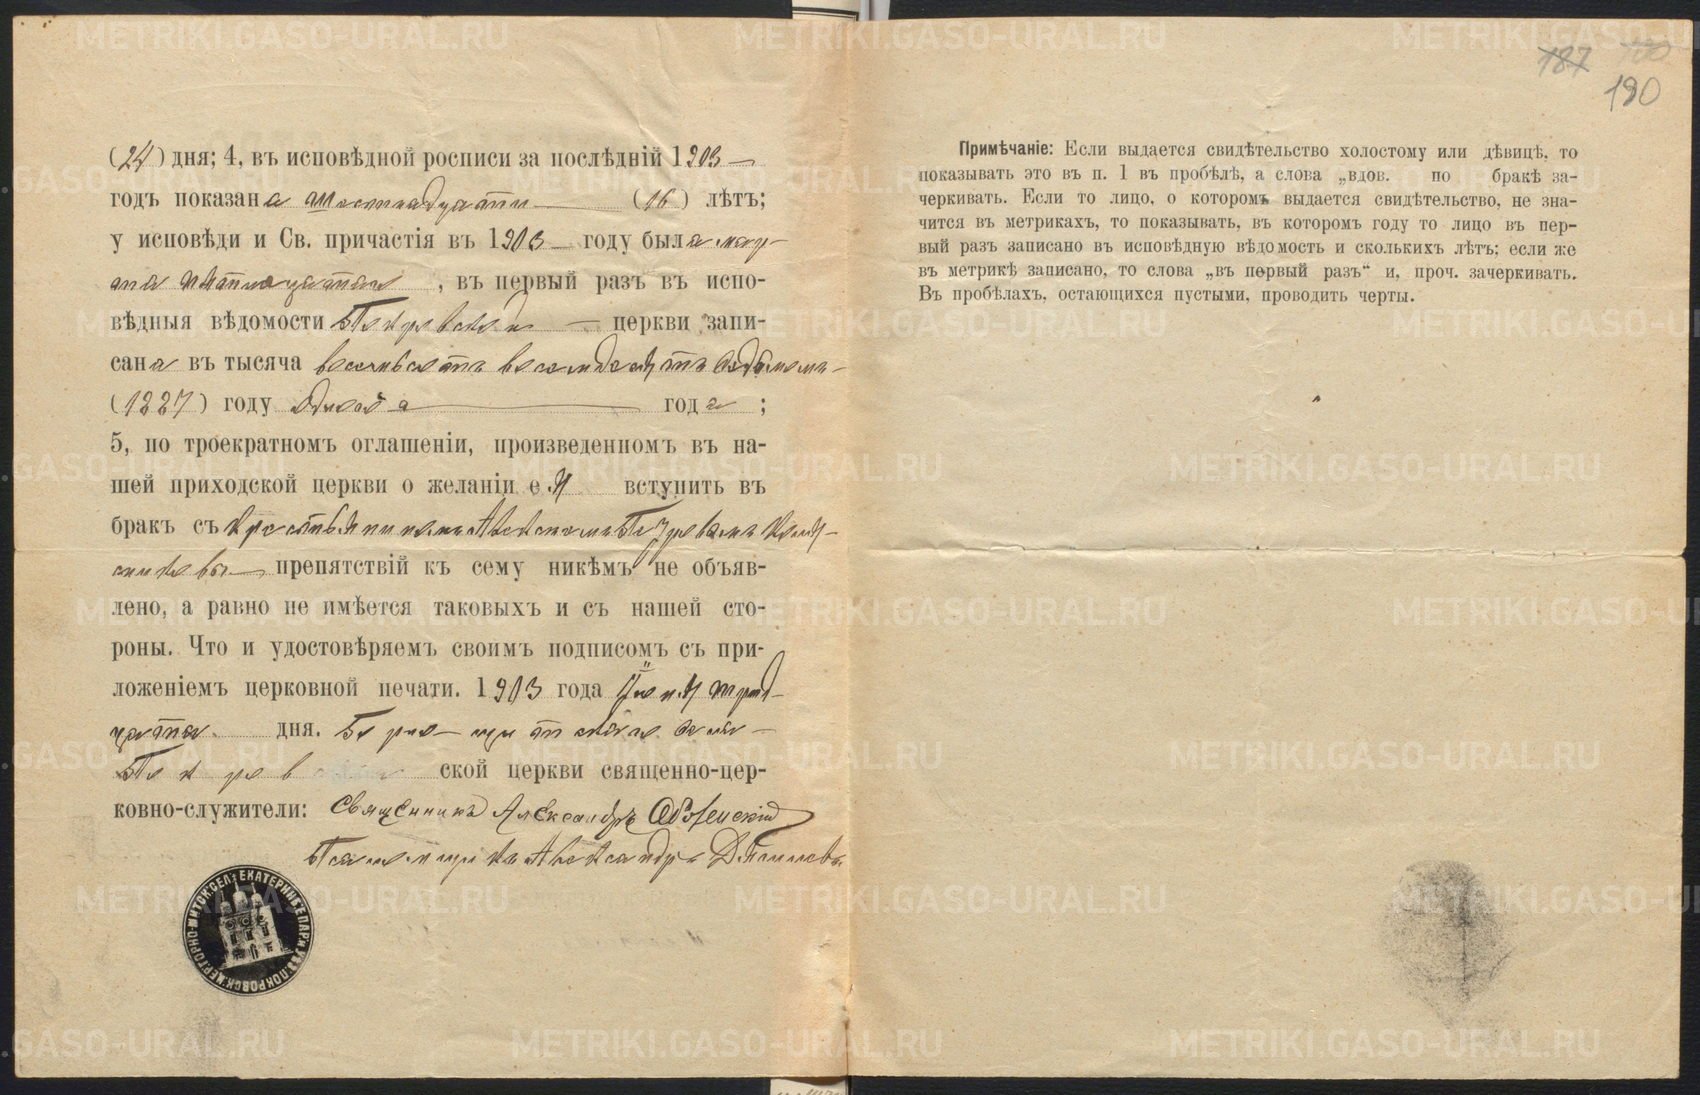 METRIKI.GASO-URAL.RU
187
190
(24) дня; 4, въ исповѣдной росписи за послѣдній 1903 —
годъ показана шестнадцати — (16) лѣтъ;
у исповѣди и Св. причастія въ 1903 — году была мар-
та пятнадцатаго, въ первый разъ въ испо-
вѣдныя вѣдомости Покровской — церкви запи-
сана въ тысяча восемьсотъ восемдесятъ седьмомъ-
(1887) году одного — года;
5, по троекратномъ оглашеніи, произведенномъ въ на-
шей приходской церкви о желаніи ея вступить въ
бракъ съ крестьяниномъ Алексѣемъ
препятствій къ сему никѣмъ не объяв-
лено, а равно не имѣется таковыхъ и съ нашей сто-
роны. Что и удостовѣряемъ своимъ подписомъ съ при-
ложеніемъ церковной печати. 1903 года трид-
цатаго дня. Горно-щитскаго села —
Покров ской церкви священно-цер-
ковно-служители: Священникъ Александръ
Псаломщикъ Александръ
ЕКАТЕРИНБ. ЕПАРХ. У. ПОКРОВСК. Ц. ГОРНО-ЩИТСК. СЕЛ.
Примѣчаніе: Если выдается свидѣтельство холостому или дѣвицѣ, то
показывать это въ п. 1 въ пробѣлѣ, а слова „вдов. по бракѣ за-
черкивать. Если то лицо, о которомъ выдается свидѣтельство, не зна-
чится въ метрикахъ, то показывать, въ которомъ году то лицо въ пер-
вый разъ записано въ исповѣдную вѣдомость и сколькихъ лѣтъ; если же
въ метрикѣ записано, то слова „въ первый разъ“ и, проч. зачеркивать.
Въ пробѣлахъ, остающихся пустыми, проводить черты.